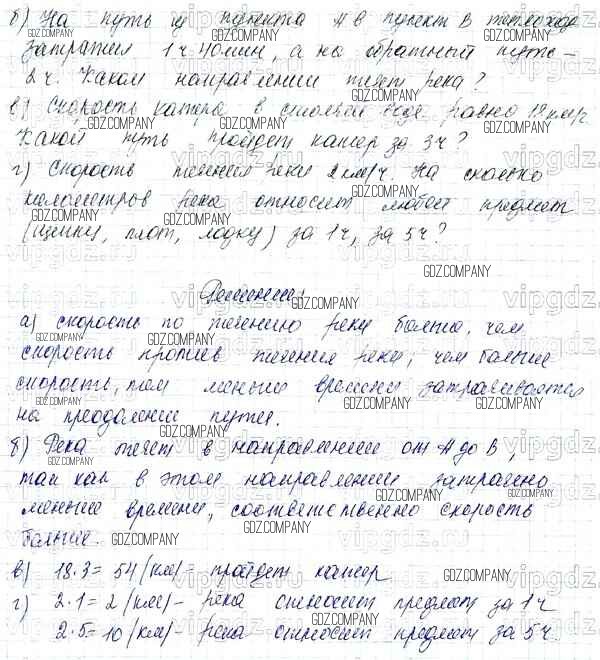 б) На путь из пункта А в пункт В теплоход
затратил 1 ч 40 мин, а на обратный путь –
2 ч. В каком направлении течет река?
в) Скорость катера в стоячей воде равна 18 км/ч.
Какой путь пройдет катер за 3 ч?
г) Скорость течения реки 2 км/ч. На сколько
километров река относит любой предмет
(щепку, плот, лодку) за 1 ч, за 5 ч?
Решение:
а) скорость по течению реки больше, чем
скорость против течения реки, чем больше
скорость, тем меньше времени затрачивается
на преодоление пути.
б) Река течет в направлении от А до В,
так как в этом направлении затрачено
меньше времени, соответственно скорость
больше.
в) 18·3 = 54 (км) – пройдет катер
г) 2·1 = 2 (км) – река относит предмет за 1 ч
2·5 = 10 (км) – река относит предмет за 5 ч.